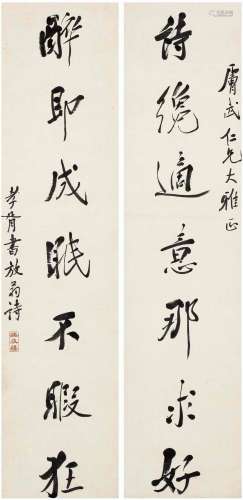 武仁兄大雅正
詩纔適意那求好
醉即成眠不暇狂
孝胥書放翁詩